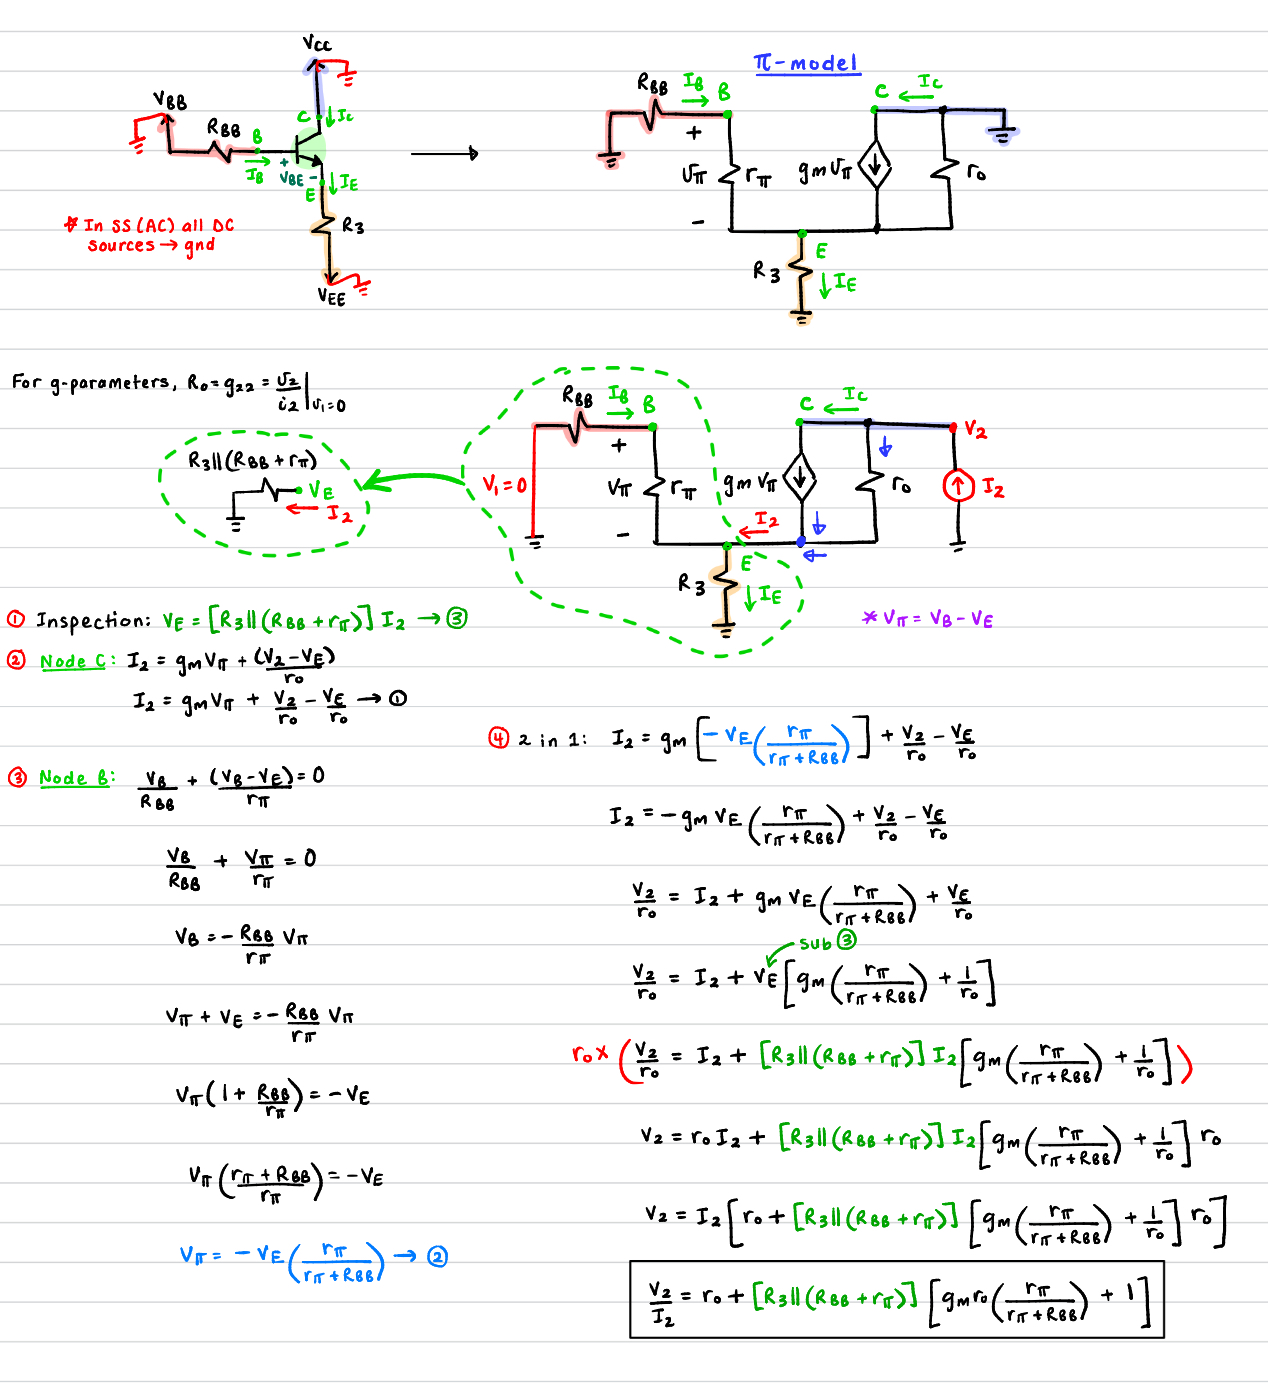 VCC
VBB
RBB
B
C
IC
IB
+
VBE -
IE
E
R3
VEE
* In SS (AC) all DC
sources → gnd
π-model
RBB
IB
B
+
υπ
rπ
-
C
IC
gm υπ
ro
E
R3
IE
For g-parameters, Ro = g22 = υ2/i2 | υ1=0
R3||(RBB + rπ)
VE
I2
RBB
IB
B
+
V1=0
Vπ
rπ
-
C
IC
gm Vπ
ro
V2
I2
I2
E
R3
IE
* Vπ = VB - VE
① Inspection: VE = [R3||(RBB + rπ)] I2 → ③
② Node C: I2 = gmVπ + (V2-VE)/ro
I2 = gmVπ + V2/ro - VE/ro → ①
③ Node B: VB/RBB + (VB-VE)/rπ = 0
VB/RBB + Vπ/rπ = 0
VB = - RBB/rπ Vπ
Vπ + VE = - RBB/rπ Vπ
Vπ(1 + RBB/rπ) = -VE
Vπ((rπ + RBB)/rπ) = -VE
Vπ = -VE(rπ/(rπ + RBB)) → ②
④ 2 in 1: I2 = gm[-VE(rπ/(rπ+RBB))] + V2/ro - VE/ro
I2 = -gm VE(rπ/(rπ+RBB)) + V2/ro - VE/ro
V2/ro = I2 + gm VE(rπ/(rπ+RBB)) + VE/ro
sub ③
V2/ro = I2 + VE[gm(rπ/(rπ+RBB)) + 1/ro]
ro x (V2/ro = I2 + [R3||(RBB + rπ)] I2[gm(rπ/(rπ+RBB)) + 1/ro])
V2 = ro I2 + [R3||(RBB + rπ)] I2[gm(rπ/(rπ+RBB)) + 1/ro] ro
V2 = I2[ro + [R3||(RBB + rπ)] [gm(rπ/(rπ+RBB)) + 1/ro] ro]
V2/I2 = ro + [R3||(RBB + rπ)] [gmro(rπ/(rπ+RBB)) + 1]